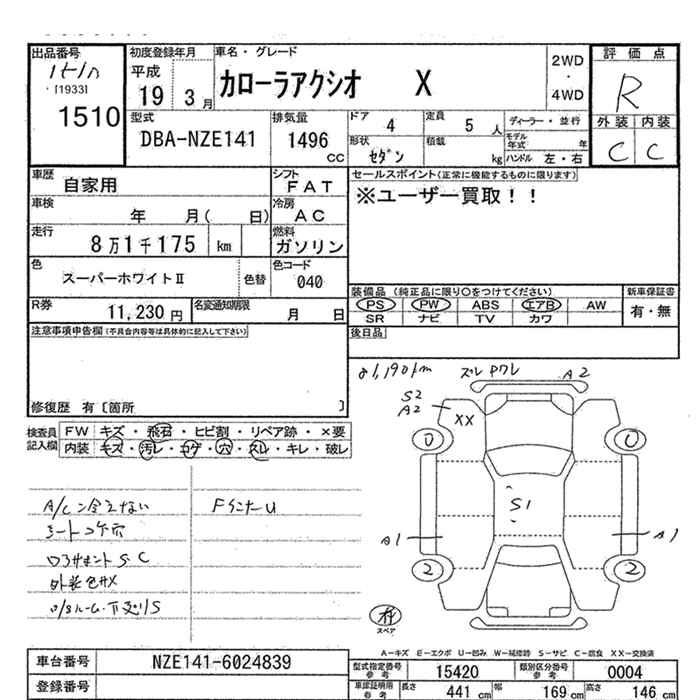 出品番号
[1933]
1510
初度登録年月
平成
19 3月
車名・グレード
カローラアクシオ X
2WD
・
4WD
評価点
R
外装 内装
C C
型式
DBA-NZE141
排気量
1496
CC
ドア
4
定員
5 人
形状
セダン
積載
kg
ディーラー・並行
モデル年式 年
ハンドル 左・右
車歴
自家用
シフト
FAT
車検
年 月( 日)
冷房
AC
走行
8万1千175 km
燃料
ガソリン
色
スーパーホワイトⅡ
色替
色コード
040
R券
11,230 円
名変通知期限
月 日
セールスポイント(正常に機能するものに限ります)
※ユーザー買取!!
装備品 (純正品に限り〇をつけてください)
PS PW ABS エアB AW
SR ナビ TV カワ
新車保証書
有・無
後日品
注意事項申告欄(不具合内容等は具体的に記入して下さい)
修復歴 有〔箇所 〕
検査員記入欄
FW キズ・飛石・ヒビ割・リペア跡・×要
内装 キズ・汚レ・コゲ・穴・スレ・キレ・破レ
A/C 冷えない
シートコゲ穴
外装色サメ
81,190km
ズレ ワレ
A2
S2
A2
XX
0
0
S1
A1
A1
2
2
スペア
A-キズ E-エクボ U-凹み W-補修跡 S-サビ C-腐食 XX-交換済
車台番号
NZE141-6024839
登録番号
型式指定番号 参考
15420
類別区分番号 参考
0004
車検証明用 参考
長さ 441 cm
幅 169 cm
高さ 146 cm